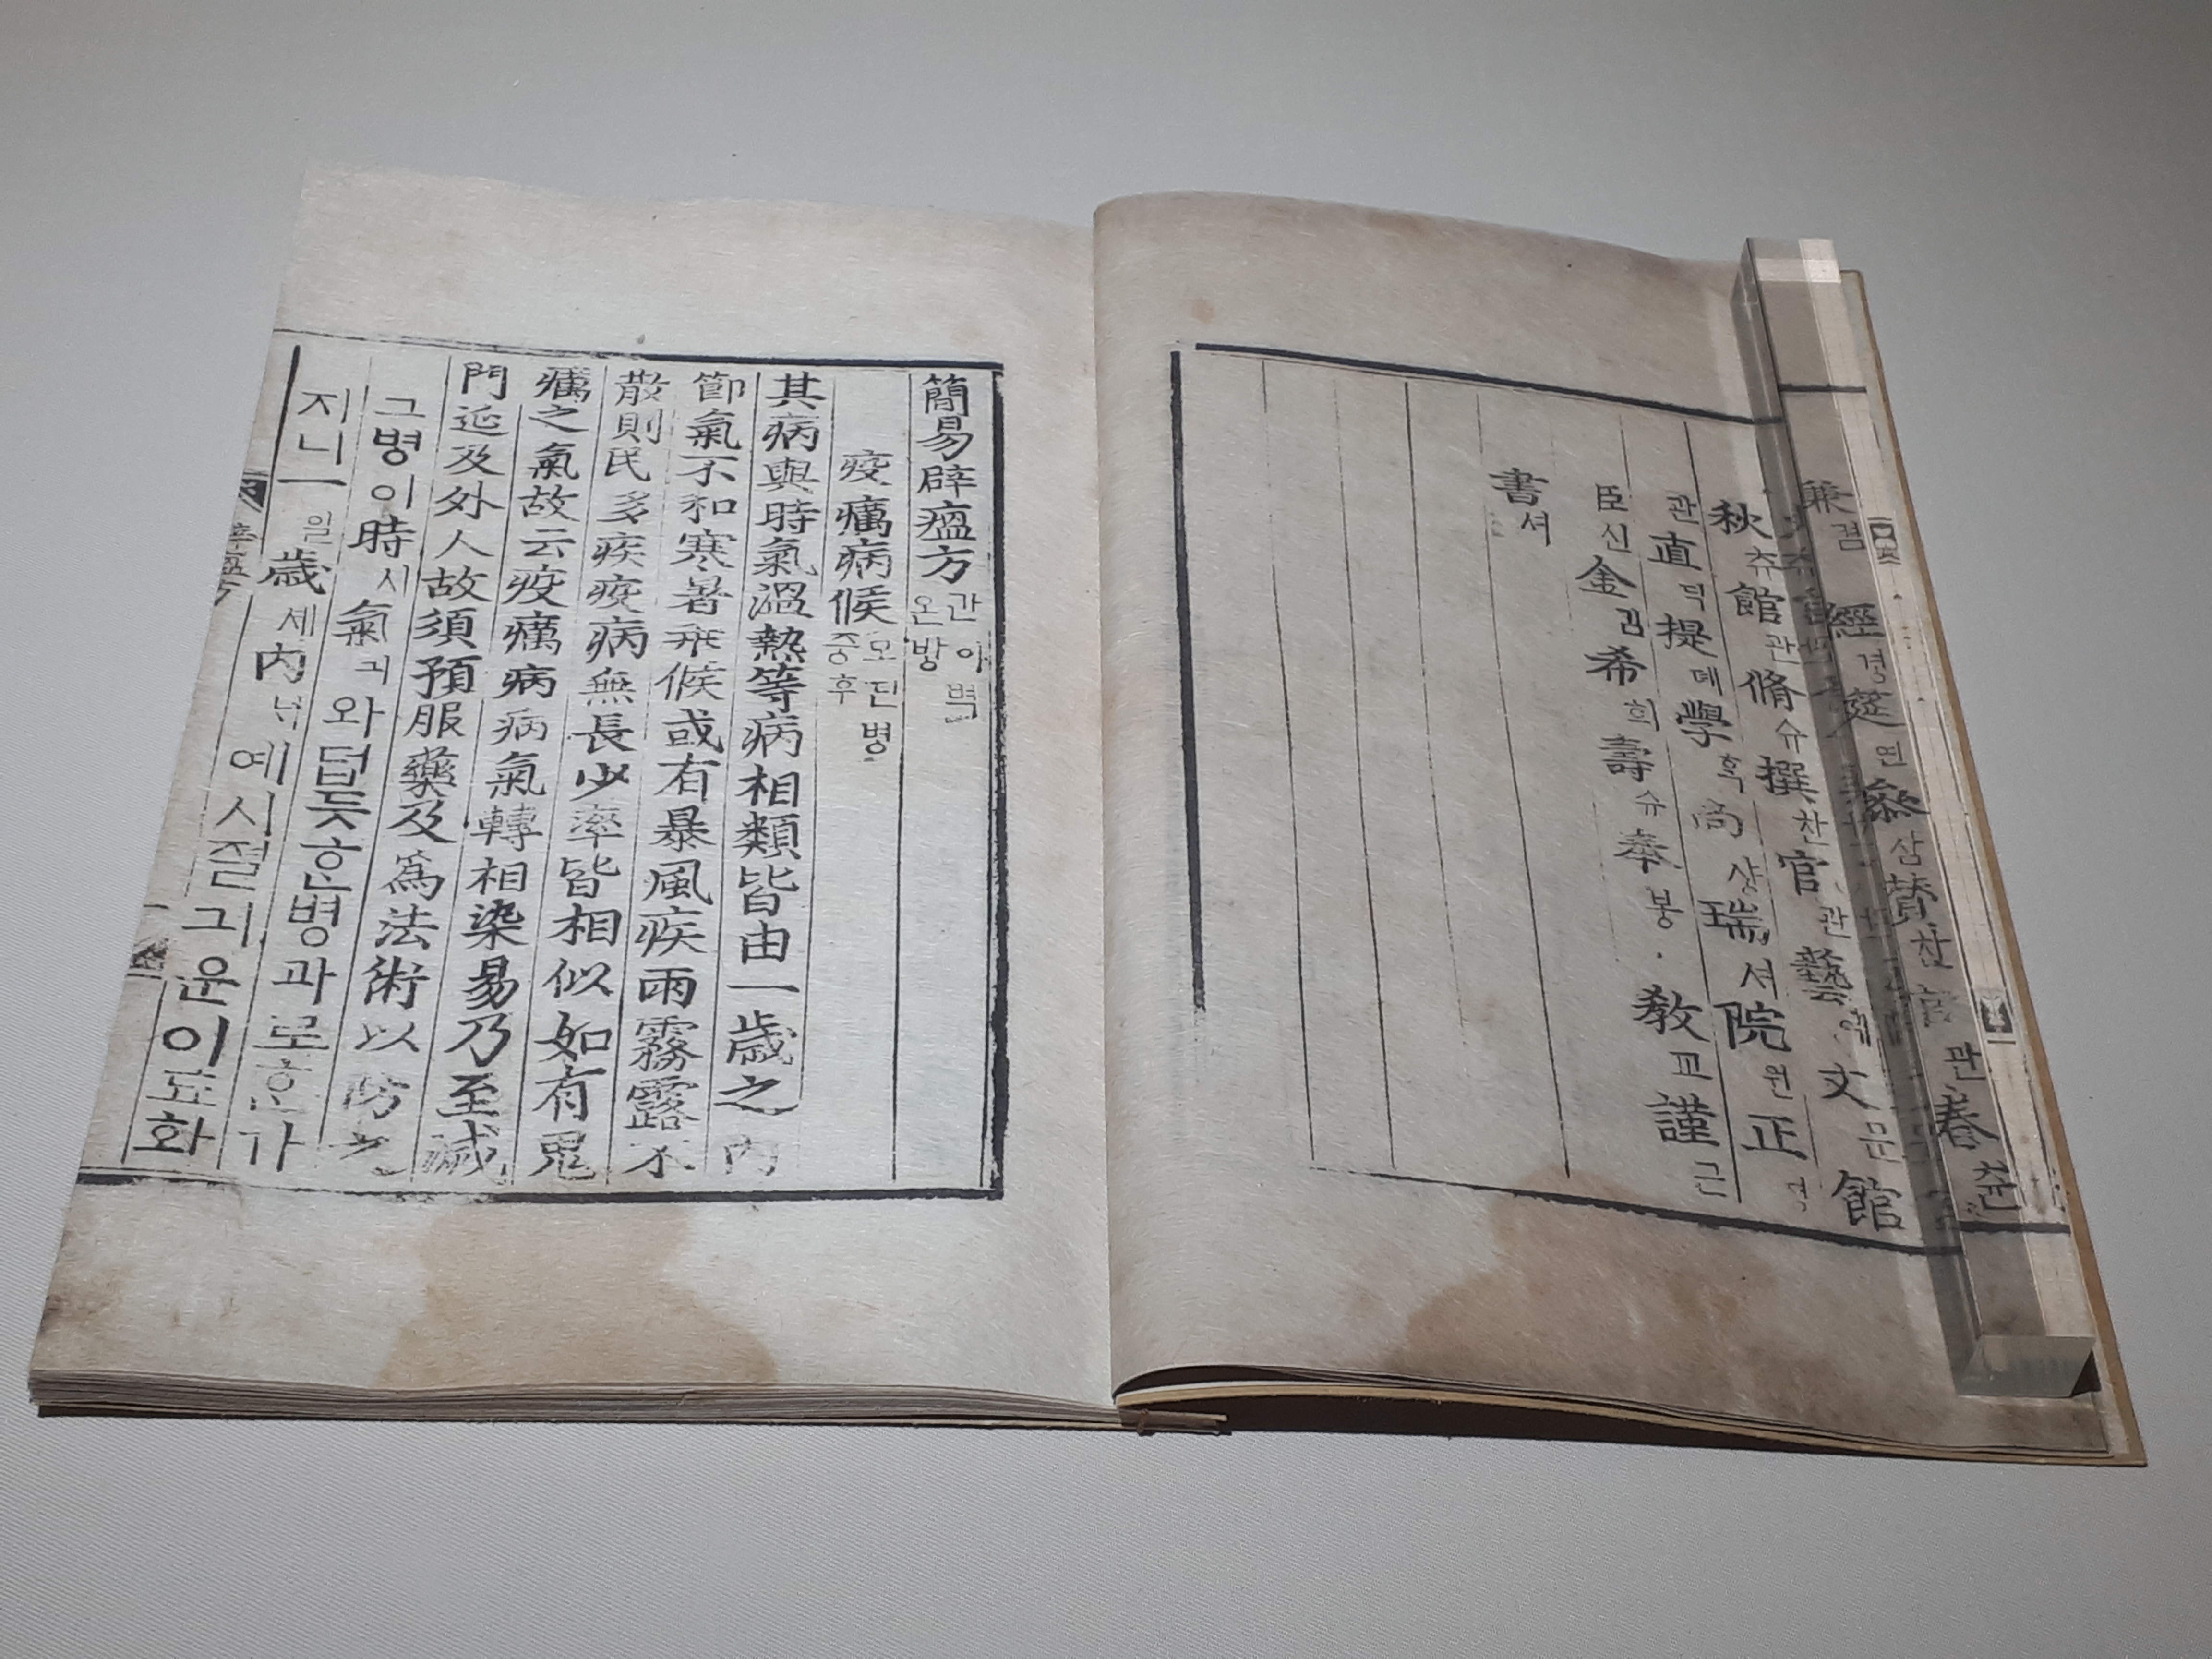 兼겸 經경筵연叅삼贊찬官관春츈
秋츄館관脩슈撰찬官관藝예文문館
관直딕提뎨學흑尙샹瑞셔院원正
臣신金김希희壽슈奉봉 敎교謹근
書셔
簡易辟瘟方간이벽온방
疫癘病候모딘병중후
其病與時氣溫熱等病相類皆由一歲之內
節氣不和寒暑乖候或有暴風疾雨霧露不
散則民多疾疫病無長少率皆相似如有鬼
癘之氣故云疫癘病病氣轉相染易乃至滅
門延及外人故須預服藥及爲法術以防之
그병이時시氣긔와덥듯ᄒᆞᆫ병과로ᄒᆞᆫ가
지니一일歲세內ᄂᆡ예시졀긔운이됴화